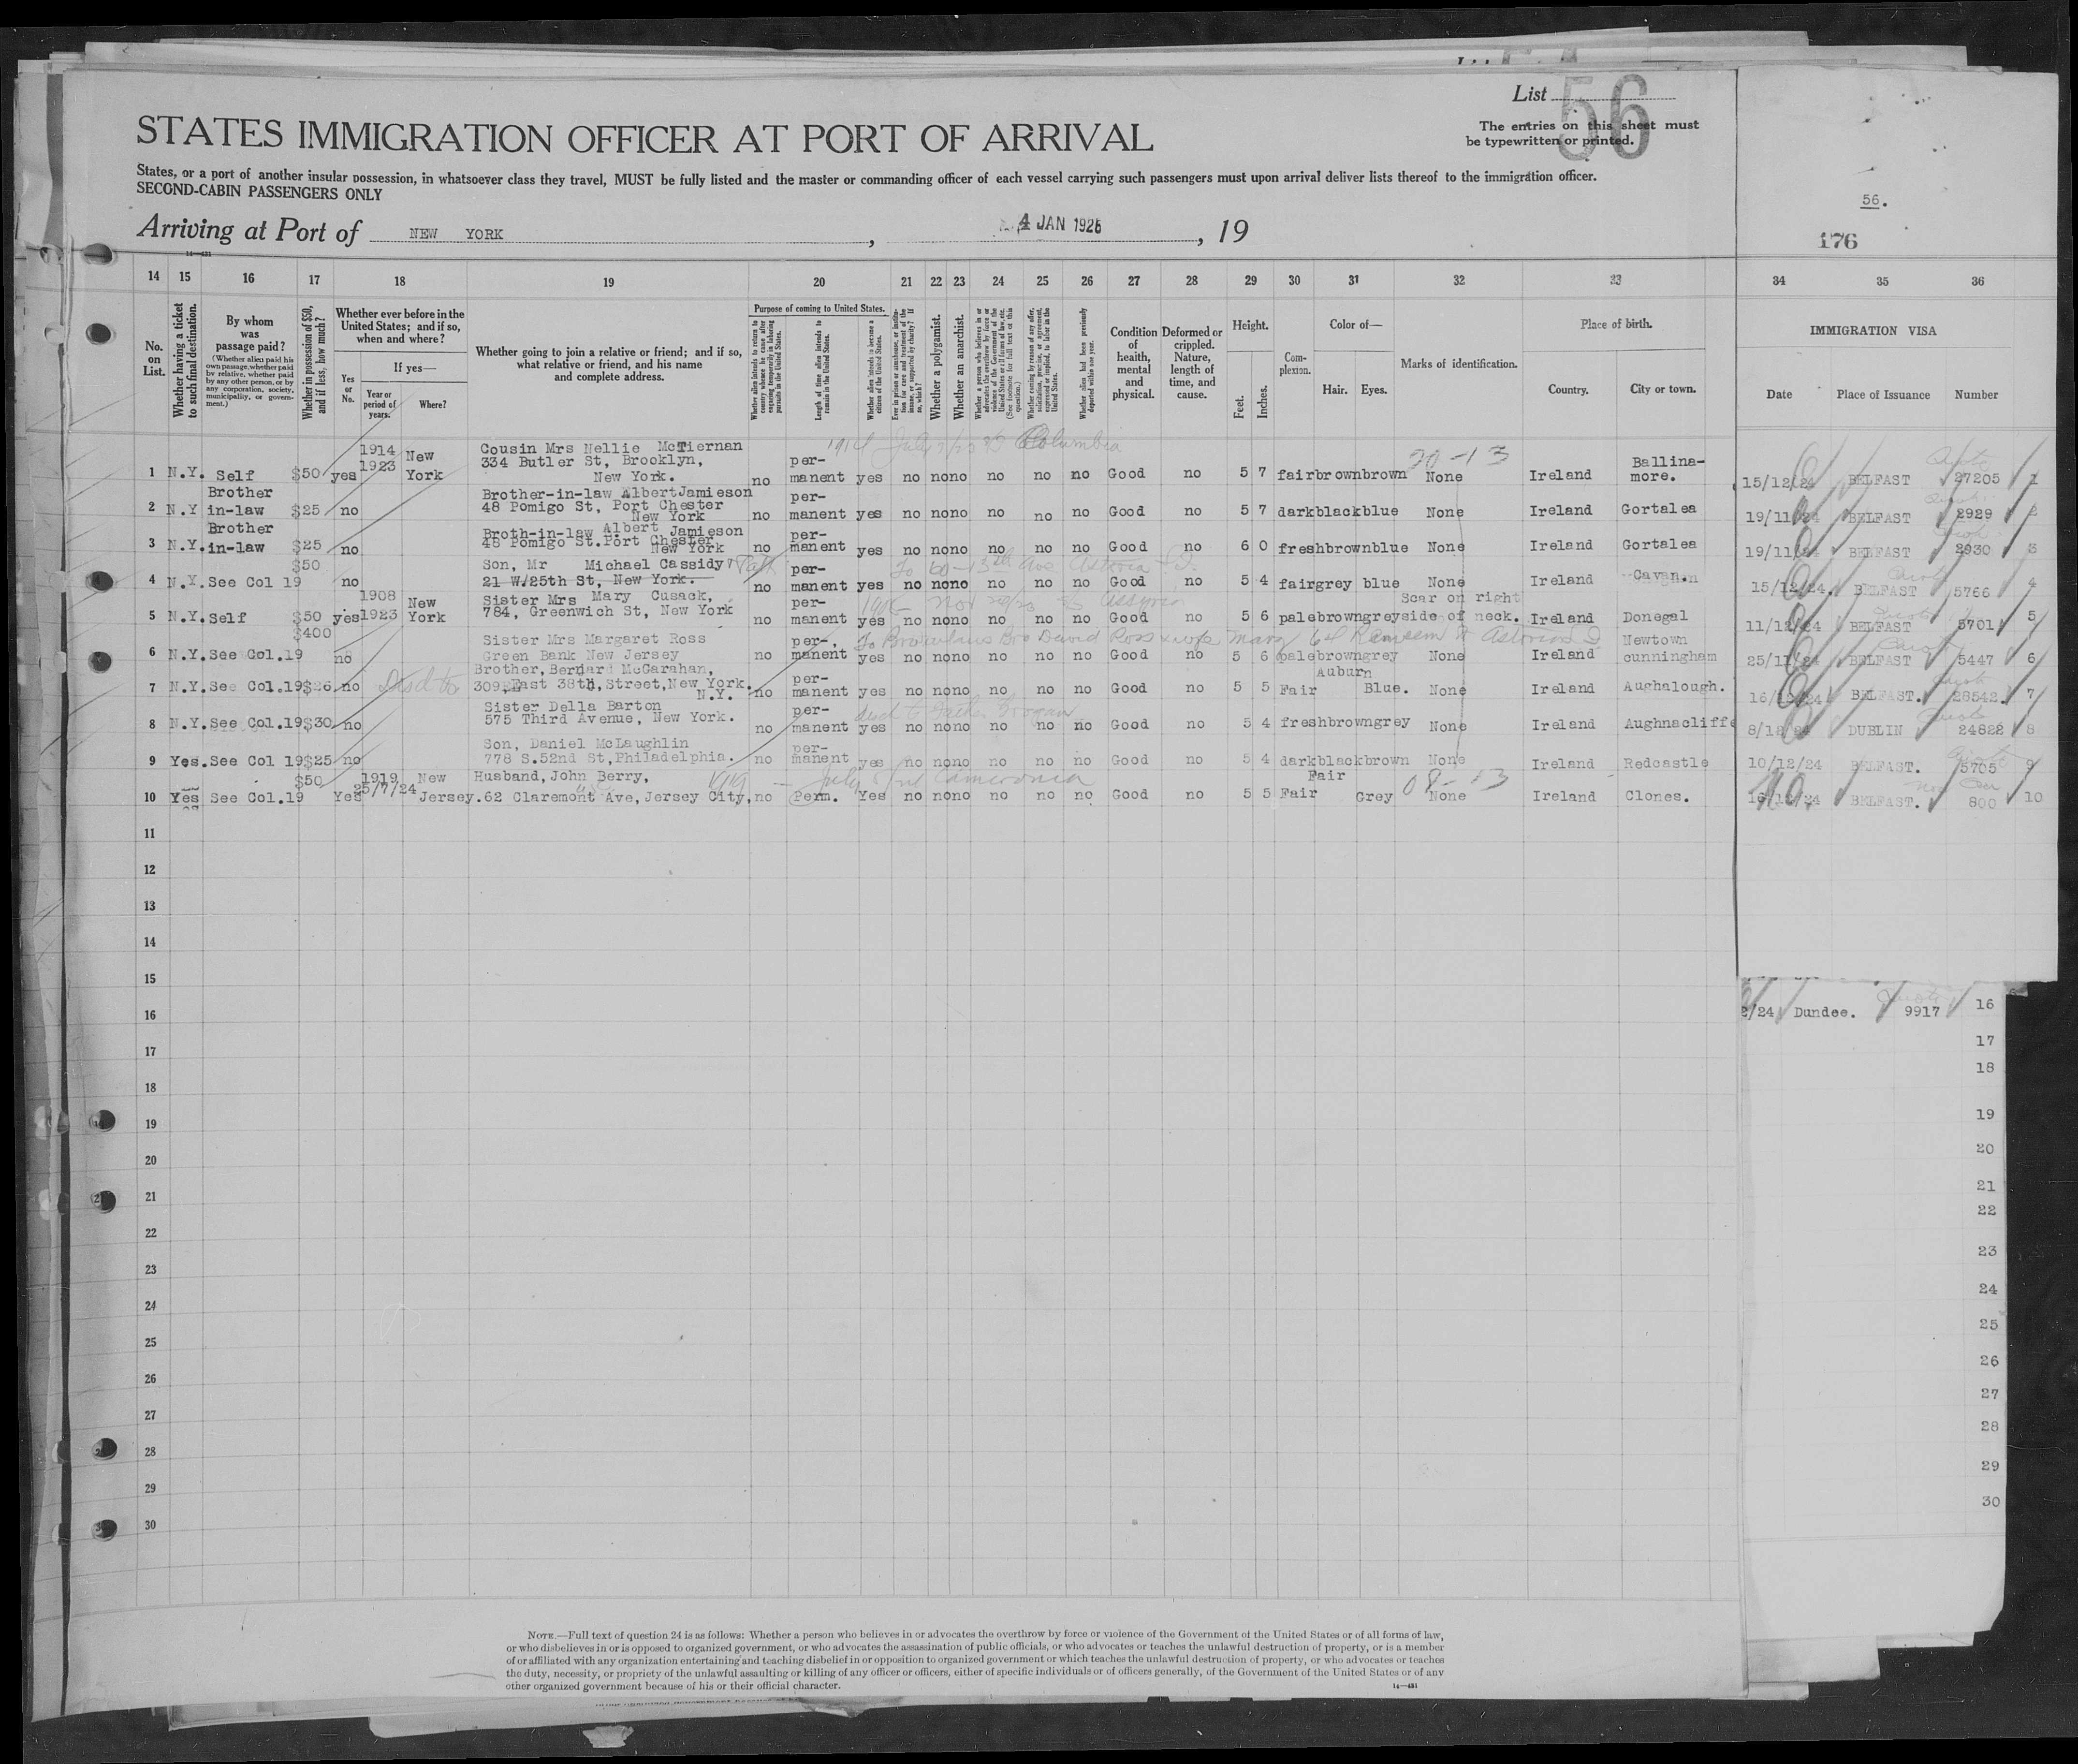 List 56
The entries on this sheet must
be typewritten or printed.
STATES IMMIGRATION OFFICER AT PORT OF ARRIVAL
States, or a port of another insular possession, in whatsoever class they travel, MUST be fully listed and the master or commanding officer of each vessel carrying such passengers must upon arrival deliver lists thereof to the immigration officer.
SECOND-CABIN PASSENGERS ONLY
56.
176
Arriving at Port of NEW YORK, 4 JAN 1925, 19
14 15 16 17 18 19 20 21 22 23 24 25 26 27 28 29 30 31 32 33 34 35 36
No. on List.
Whether having a ticket to such final destination.
By whom was passage paid?
(Whether alien paid his own passage, whether paid by relative, whether paid by any other person, or by any corporation, society, municipality, or government.)
Whether in possession of $50, and if less, how much?
Whether ever before in the United States; and if so, when and where?
Yes or No.
If yes—
Year or period of years.
Where?
Whether going to join a relative or friend; and if so, what relative or friend, and his name and complete address.
Purpose of coming to United States.
Length of time alien intends to remain in the United States.
Whether alien intends to become a citizen of the United States.
Whether a polygamist.
Whether an anarchist.
Condition of health, mental and physical.
Deformed or crippled. Nature, length of time, and cause.
Height.
Feet.
Inches.
Complexion.
Color of—
Hair. Eyes.
Marks of identification.
Place of birth.
Country.
City or town.
IMMIGRATION VISA
Date
Place of Issuance
Number
1914 July Columbia
20-13
1 N.Y. Self $50 yes 1914 1923 New York Cousin Mrs Nellie McTiernan 334 Butler St, Brooklyn, New York. no per-manent yes no no no no no no Good no 5 7 fair brown brown None Ireland Ballina-more. 15/12/24 BELFAST 27205 1
2 N.Y Brother in-law $25 no Brother-in-law Albert Jamieson 48 Pomigo St, Port Chester New York no per-manent yes no no no no no no Good no 5 7 dark black blue None Ireland Gortalea 19/11/24 BELFAST 2929 2
3 N.Y. Brother in-law $25 no Broth-in-law Albert Jamieson 48 Pomigo St.Port Chester, New York no per-manent yes no no no no no no Good no 6 0 fresh brown blue None Ireland Gortalea 19/11/24 BELFAST 2930 3
4 N.Y. See Col 19 $50 no Son, Mr Michael Cassidy 21 W/25th St, New York. no per-manent yes no no no no no no Good no 5 4 fair grey blue None Ireland Cavan. 15/12/24. BELFAST 5766 4
To 60-13th Ave Astoria
5 N.Y. Self $50 yes 1908 1923 New York Sister Mrs Mary Cusack, 784, Greenwich St, New York no per-manent yes no no no no no no Good no 5 6 pale brown grey Scar on right side of neck. Ireland Donegal 11/12/24 BELFAST 5701 5
Assyria
6 N.Y. See Col.19 $400 no Sister Mrs Margaret Ross Green Bank New Jersey no per-manent yes no no no no no no Good no 5 6 pale brown grey None Ireland Newtown cunningham 25/11/24 BELFAST 5447 6
David Ross Mary Astoria
7 N.Y. See Col.19 $26 no Brother, Bernard McCarahan, 309, East 38th, Street, New York. N.Y. no per-manent yes no no no no no no Good no 5 5 Fair Auburn Blue. None Ireland Aughalough. 16/12/24 BELFAST. 28542. 7
8 N.Y. See Col.19 $30 no Sister Della Barton 575 Third Avenue, New York. no per-manent yes no no no no no no Good no 5 4 fresh brown grey None Ireland Aughnacliffe 8/12/24 DUBLIN 24822 8
9 Yes. See Col 19 $25 no Son, Daniel McLaughlin 778 S.52nd St, Philadelphia. no per-manent yes no no no no no no Good no 5 4 dark black brown None Ireland Redcastle 10/12/24 BELFAST. 5705 9
July Cameronia
08-13
10 Yes See Col.19 $50 Yes 1919 25/7/24 New Jersey. Husband, John Berry, 62 Claremont Ave, Jersey City, no Perm. Yes no no no no no no Good no 5 5 Fair Fair Grey None Ireland Clones. 16/12/24 BELFAST. 800 10
11
12
13
14
15
16 2/24 Dundee. 9917 16
17 17
18 18
19 19
20 20
21 21
22 22
23 23
24 24
25 25
26 26
27 27
28 28
29 29
30 30
NOTE.—Full text of question 24 is as follows: Whether a person who believes in or advocates the overthrow by force or violence of the Government of the United States or of all forms of law,
or who disbelieves in or is opposed to organized government, or who advocates the assassination of public officials, or who advocates or teaches the unlawful destruction of property, or is a member
of or affiliated with any organization entertaining and teaching disbelief in or opposition to organized government or which teaches the unlawful destruction of property, or who advocates or teaches
the duty, necessity, or propriety of the unlawful assaulting or killing of any officer or officers, either of specific individuals or of officers generally, of the Government of the United States or of any
other organized government because of his or their official character.
14—421